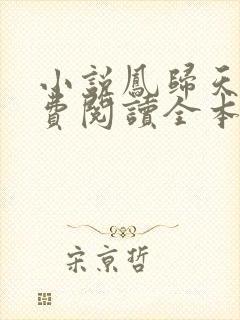 小說鳳歸天
費閱讀全本
宋京哲